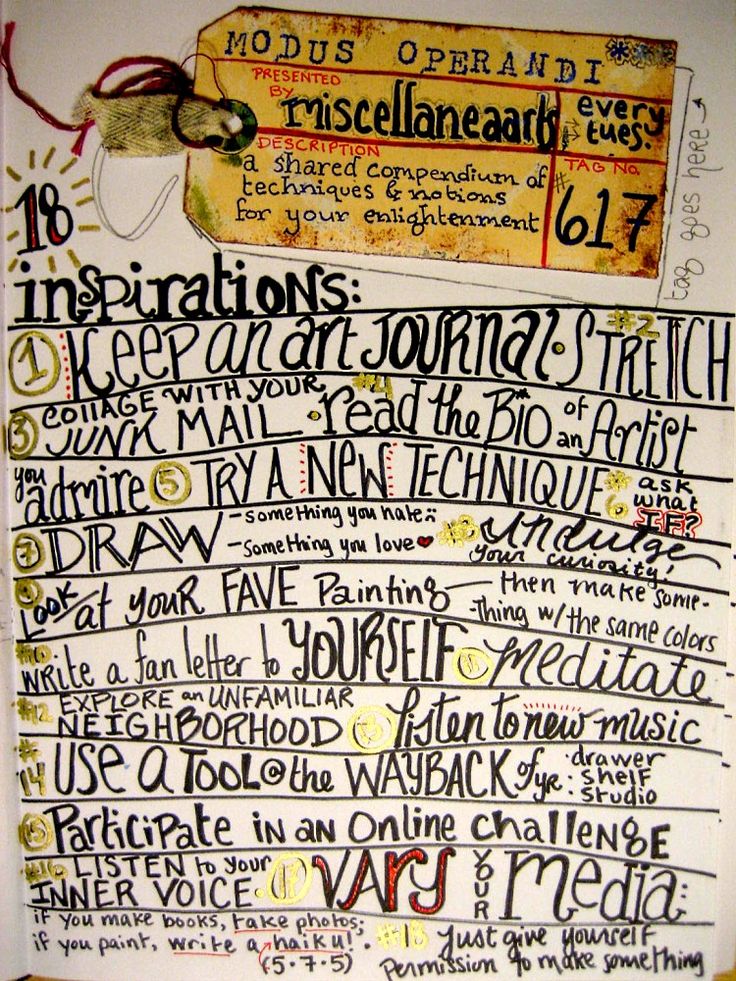 MODUS OPERANDI
PRESENTED BY miscellaneaarts
every tues.
DESCRIPTION
a shared compendium of
techniques & notions
for your enlightenment
TAG No.
#617
tag goes here
18
inspirations:
1 Keep an art JOURNAL · #2 STRETCH
3 COLLAGE WITH YOUR JUNK MAIL · #4 read the Bio of an Artist
you admire 5 TRY A NEW TECHNIQUE #6 ask what IF?
7 DRAW - something you hate - something you love #8 indulge your curiosity!
9 LOOK at your FAVE Painting - then make some-
-thing w/ the same colors
#10 write a fan letter to YOURSELF 11 Meditate
#12 EXPLORE an UNFAMILIAR NEIGHBORHOOD 13 listen to new music
#14 USE a TOOL @ the WAYBACK of yr: drawer shelf studio
15 Participate in an Online challenge
#16 LISTEN to your INNER VOICE. 17 VARY YOUR Media:
if you make books, take photos;
if you paint, write a haiku! . #18 Just give yourself
(5·7·5) permission to make something